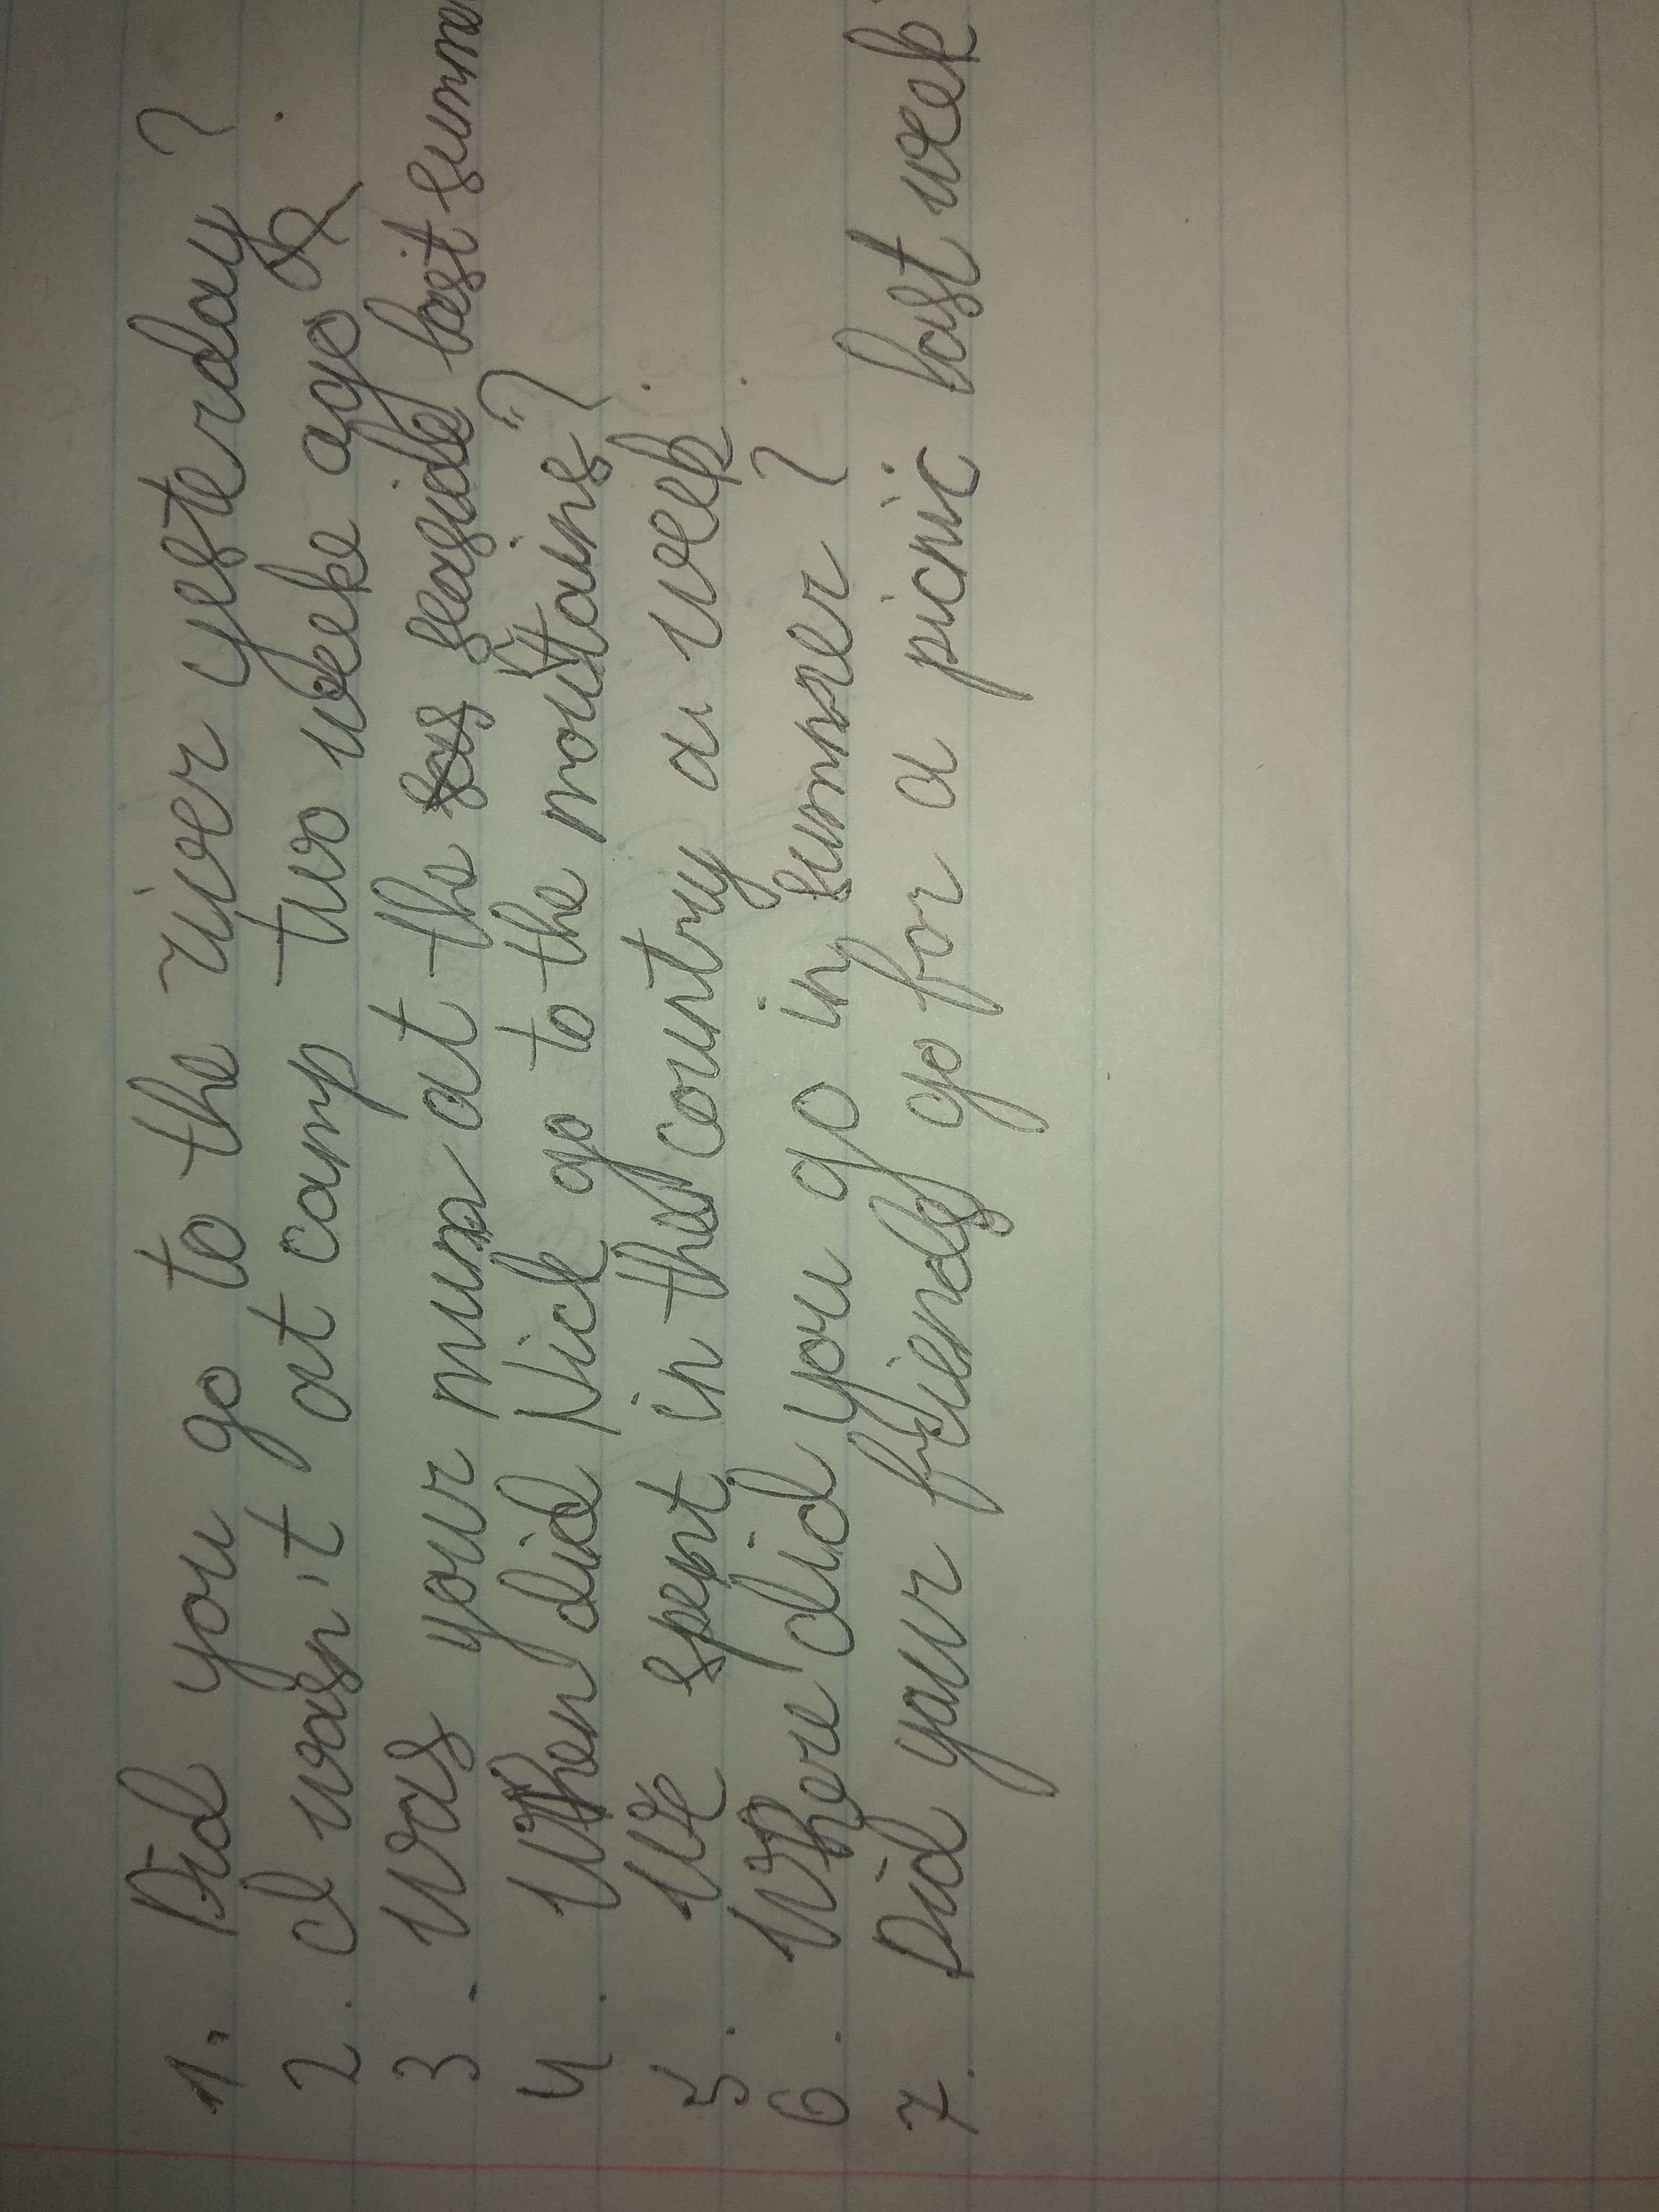 1. Did you go to the river yesterday?
2. I wasn't at camp two weeke ago.
3. Was your mum at the seaside last summe
4. When did Nick go to the moutains?
5. We spent in the country a week.
6. Where did you go in summer?
7. Did your friends go for a picnic last week